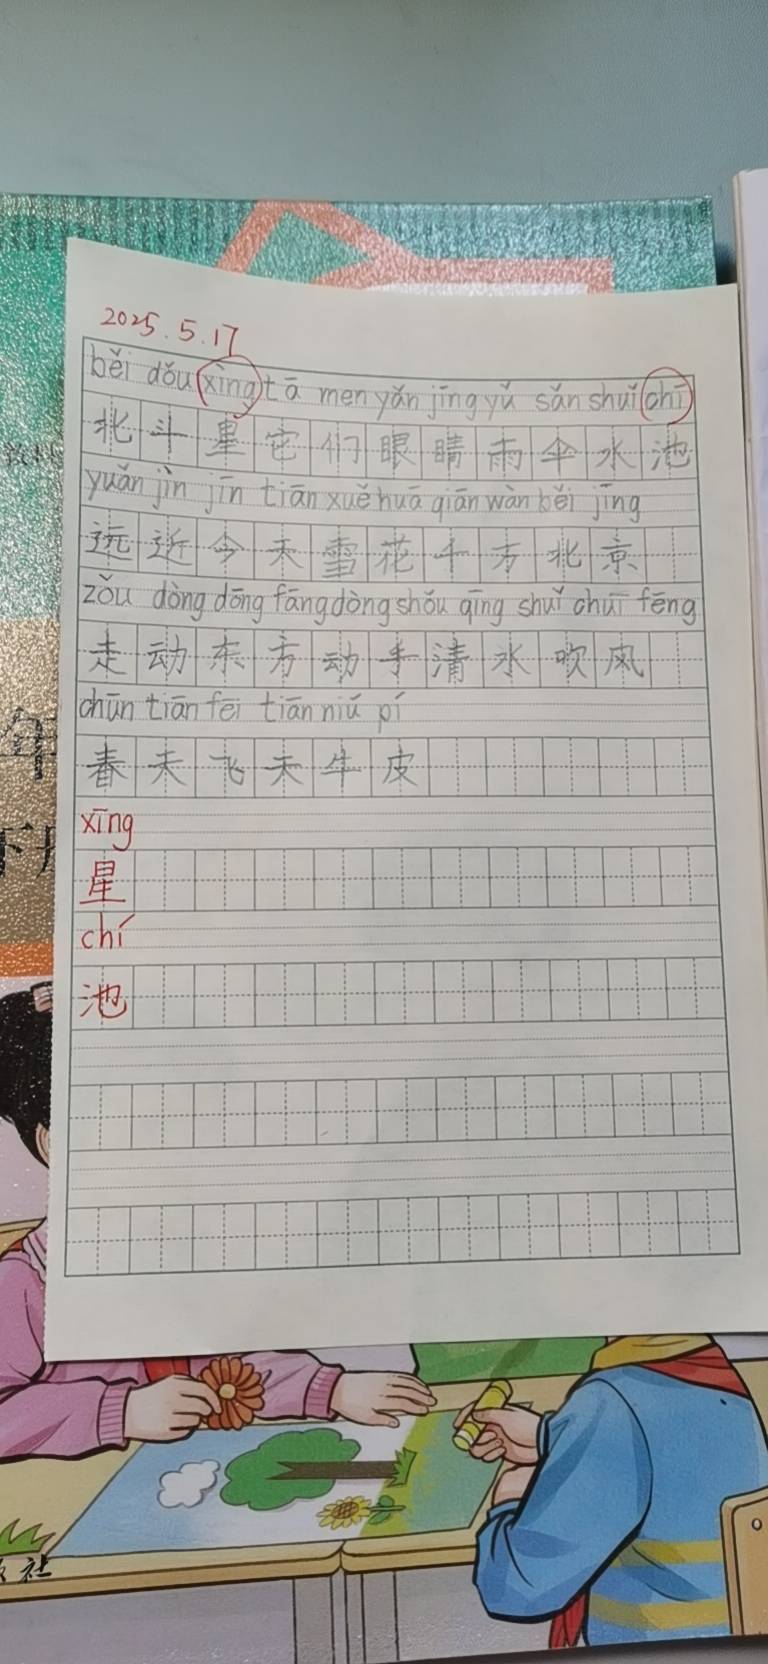 2025.5.17
běi dǒu xìng tā men yǎn jīng yǔ sǎn shuǐ chī
北斗星它们眼睛雨伞水池
yuǎn jìn jīn tiān xuě huā qiān wàn běi jīng
远近今天雪花千万北京
zǒu dòng dōng fāng dòng shǒu qīng shuǐ chuī fēng
走动东方动手清水吹风
chūn tiān fēi tiān niú pí
春天飞天牛皮
xīng
星
chí
池
社